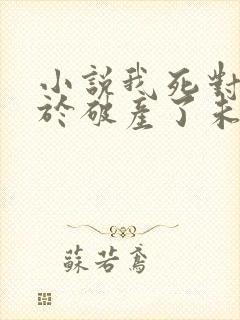 小說我死對
於破產了未
蘇若鳶